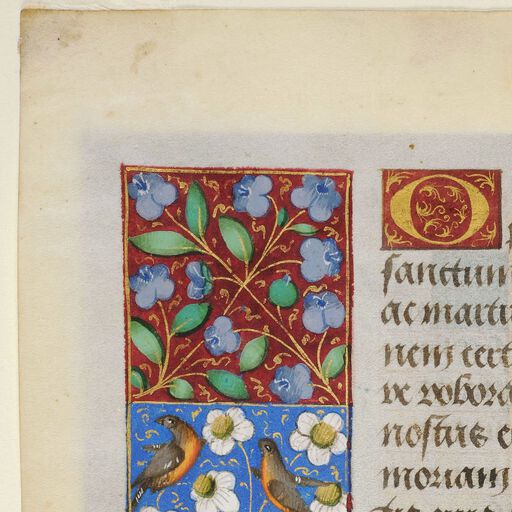 O
sanctum
ac martir
nem cert
ve vobora
nostras e
moriam